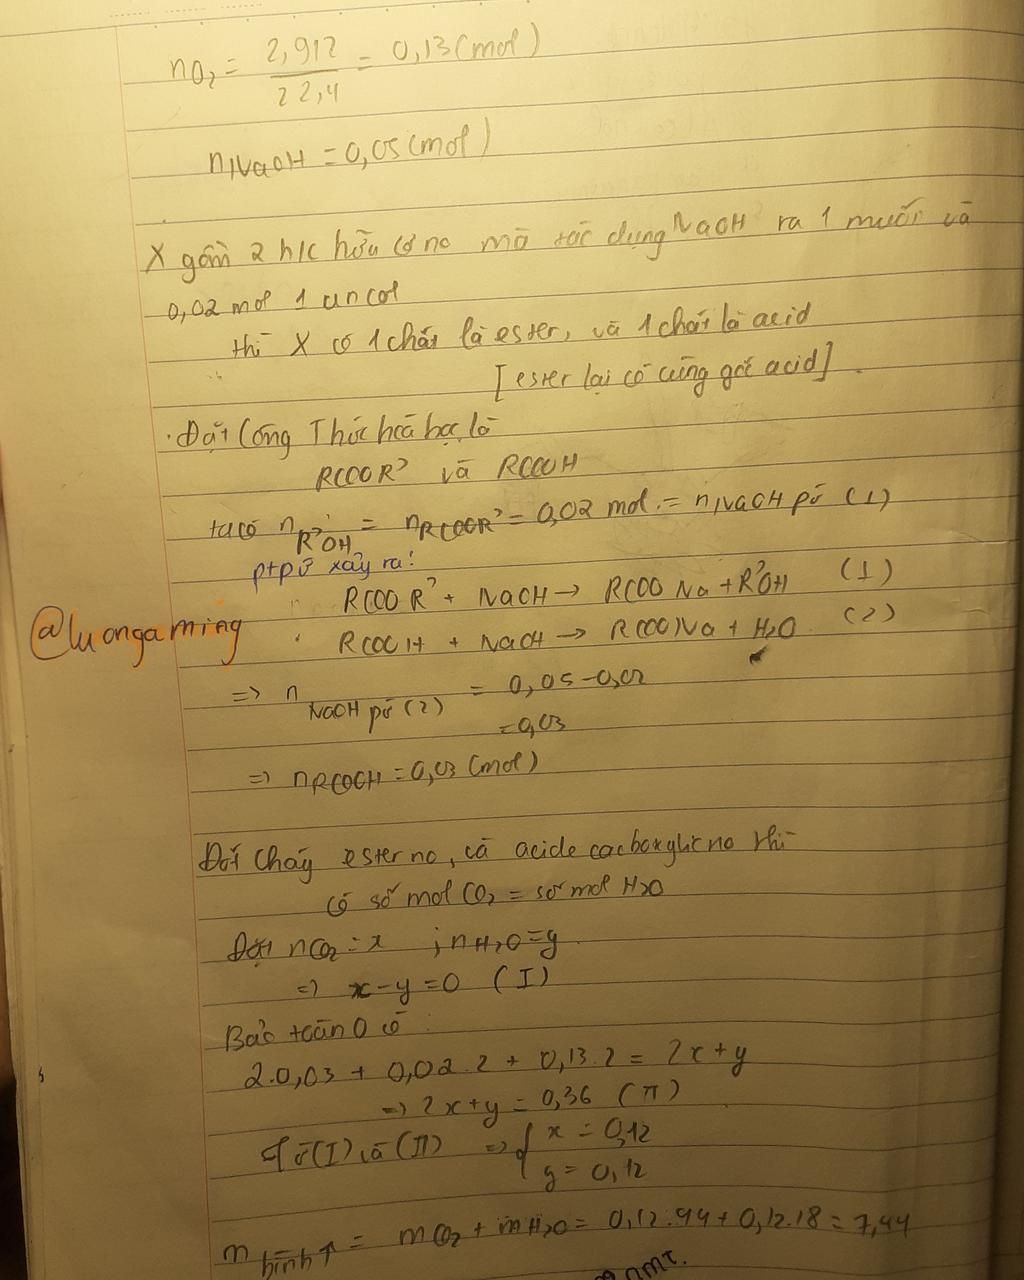 nO₂ = 2,912 / 22,4 = 0,13 (mol)
nNaOH = 0,05 (mol)
X gồm 2 h/c hữu cơ no mà tác dụng NaOH ra 1 muối và
0,02 mol 1 ancol
thì X có 1 chất là ester, và 1 chất là acid
[ester lại có cùng gốc acid].
. Đặt Công Thức hoá học là
RCOOR' và RCOOH
ta có nR'OH = nRCOOR' = 0,02 mol. = nNaOH pứ (1)
ptpứ xảy ra:
RCOOR' + NaOH → RCOONa + R'OH (1)
@luongaming
RCOOH + NaOH → RCOONa + H₂O (2)
=> nNaOH pứ (2) = 0,05 - 0,02
= 0,03
=> nRCOOH = 0,03 (mol)
Đốt cháy ester no, và acide carboxylic no thì
có số mol CO₂ = số mol H₂O
Đặt nCO₂ = x ; nH₂O = y
=> x - y = 0 (I)
Bảo toàn O có
2.0,03 + 0,02.2 + 0,13.2 = 2x + y
=> 2x + y = 0,36 (II)
Từ (I) và (II) => { x = 0,12
y = 0,12
m bình↑ = mCO₂ + mH₂O = 0,12.44 + 0,12.18 = 7,44